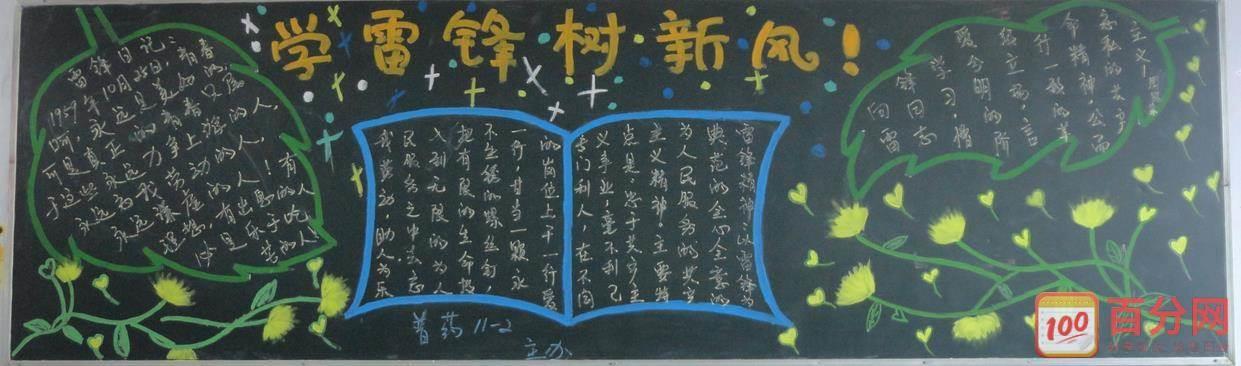 学雷锋树新风！
雷锋日记：
1959年10月25日：青春
啊，永远是美好的，
可是真正的青春只属
于这些永远力争上游的人，
永远忘我劳动的人，
永远谦虚的人！有
有出息的人
必是乐于吃
苦的人
雷锋精神，以雷锋为
典范的全心全意的
为人民服务的共产
主义精神。主要特
点是：忠于共产主
义事业，毫不利己
专门利人，在不同
的岗位上干一行爱
一行，甘当一颗永
不生锈的螺丝钉，
把有限的生命投
入到无限的为人
民服务之中去忘
我劳动，助人为乐
向雷
锋同志
学习，憎
爱分明的阶
级立场，言
行一致的革
命精神，公而
忘私的共产
主义！
普药11-2
主办
100
百分网